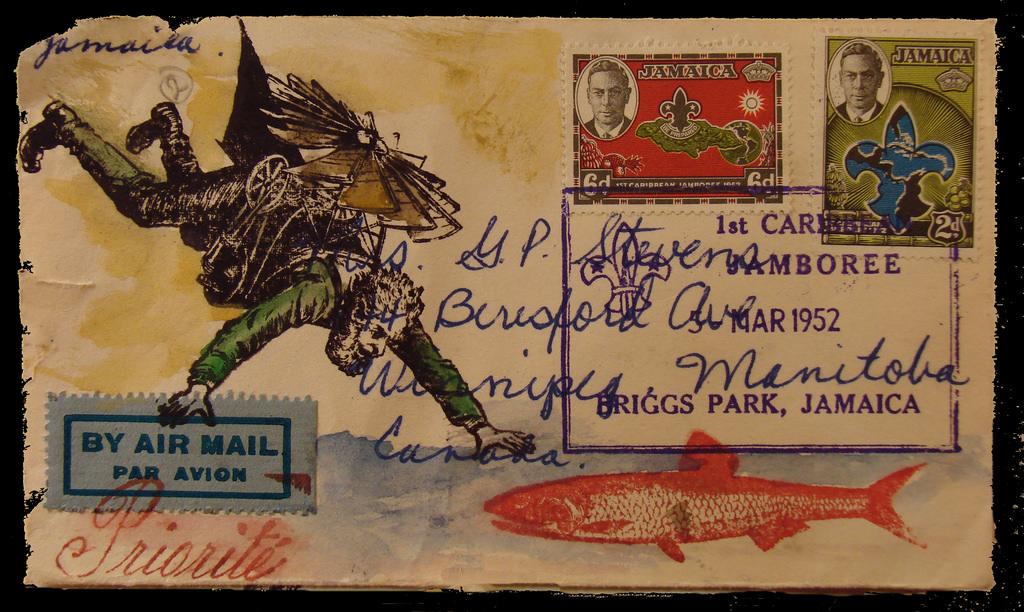 Jamaica.
JAMAICA
6d 1ST CARIBBEAN JAMBOREE 1952 6d
JAMAICA
2d
1st CARIBBEAN
JAMBOREE
MAR 1952
BRIGGS PARK, JAMAICA
Mrs. G. P. Stevens
Beresford Ave
Winnipeg, Manitoba
Canada.
BY AIR MAIL
PAR AVION
Priorité